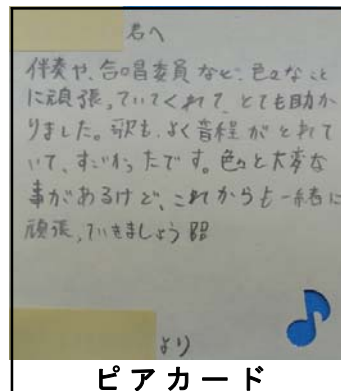 君へ
伴奏や、合唱委員など、色々なこと
に頑張っていてくれて、とても助か
りました。歌も、よく音程がとれて
いて、すごかったです。色々と大変な
事があるけど、これからも一緒に
頑張っていきましょう
より
ピアカード